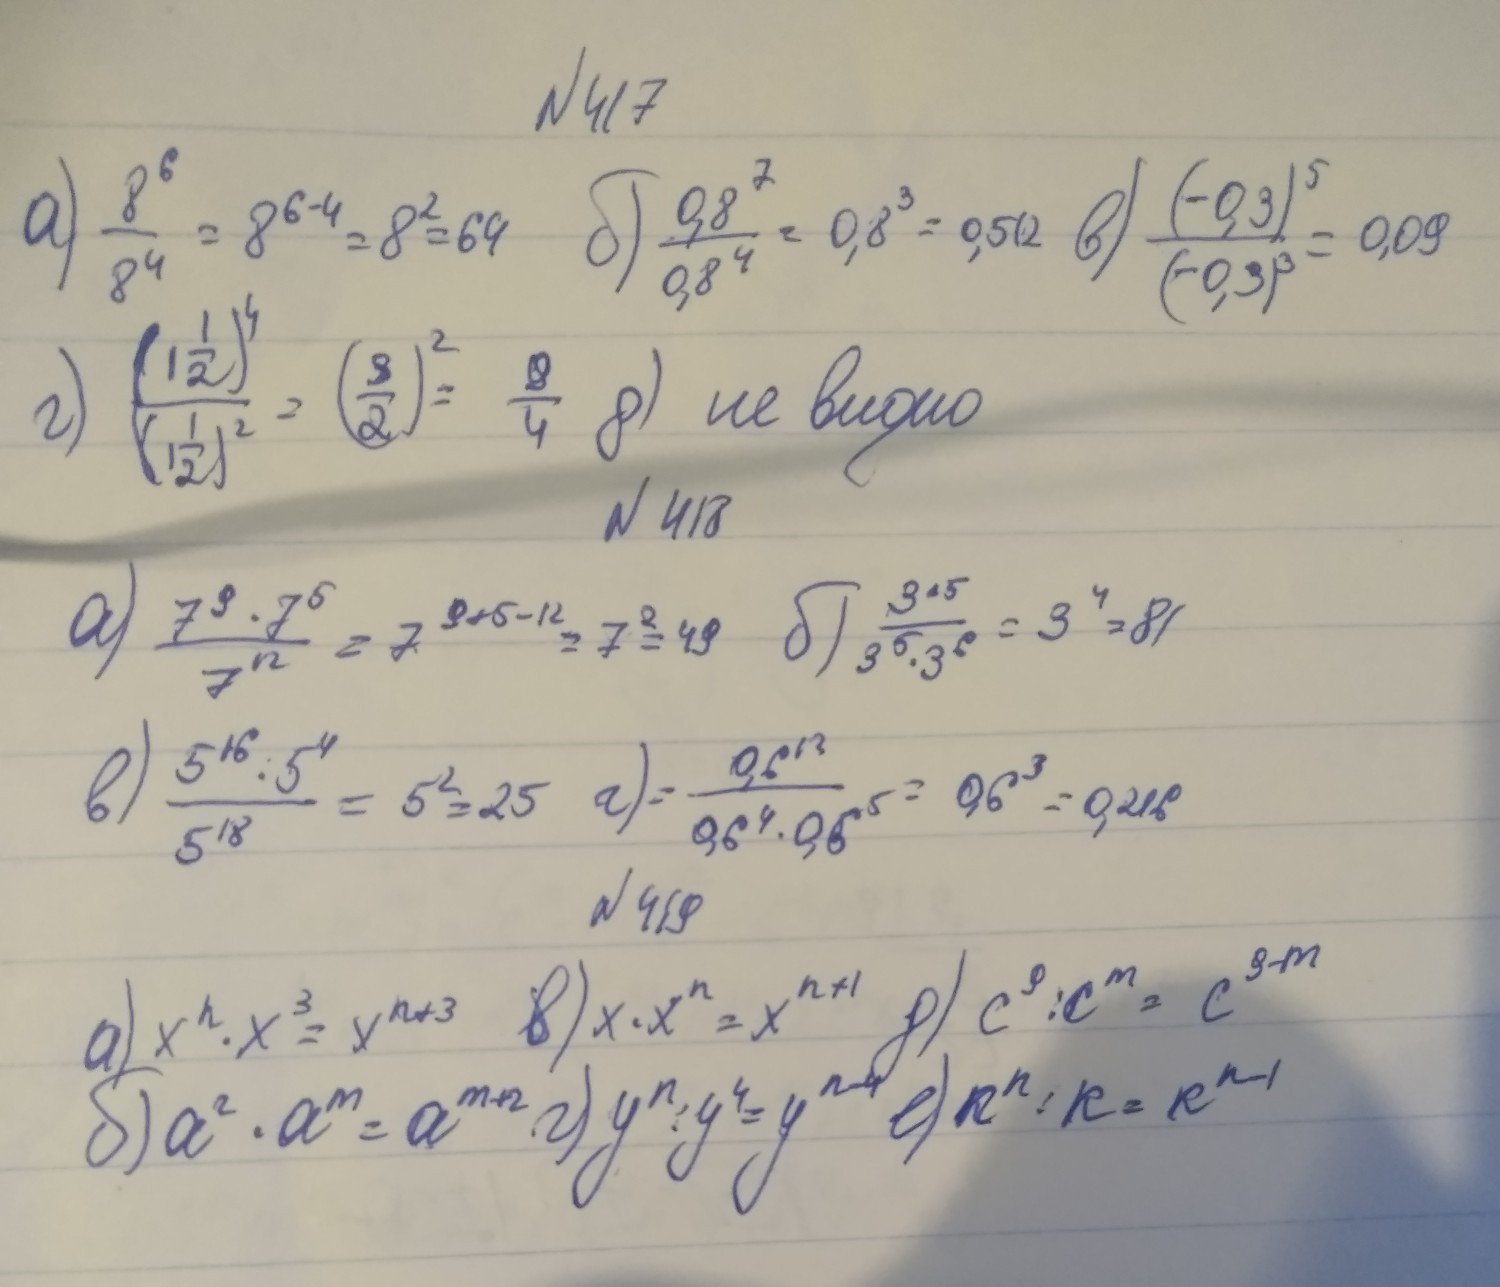 №417
а) 8^6/8^4 = 8^{6-4} = 8^2 = 64 б) 0,8^7/0,8^4 = 0,8^3 = 0,512 в) (-0,3)^5/(-0,3)^3 = 0,09
г) (1 1/2)^4/(1 1/2)^2 = (3/2)^2 = 9/4 д) не видно
№418
а) 7^9 · 7^5/7^12 = 7^{9+5-12} = 7^2 = 49 б) 3^15/3^5 · 3^6 = 3^4 = 81
в) 5^16 : 5^4/5^18 = 5^2 = 25 г) = 0,6^12/0,6^4 · 0,6^5 = 0,6^3 = 0,216
№419
а) x^n · x^3 = x^{n+3} в) x · x^n = x^{n+1} д) c^9 : c^m = c^{9-m}
б) a^2 · a^m = a^{m+2} г) y^n : y^4 = y^{n-4} е) k^n : k = k^{n-1}